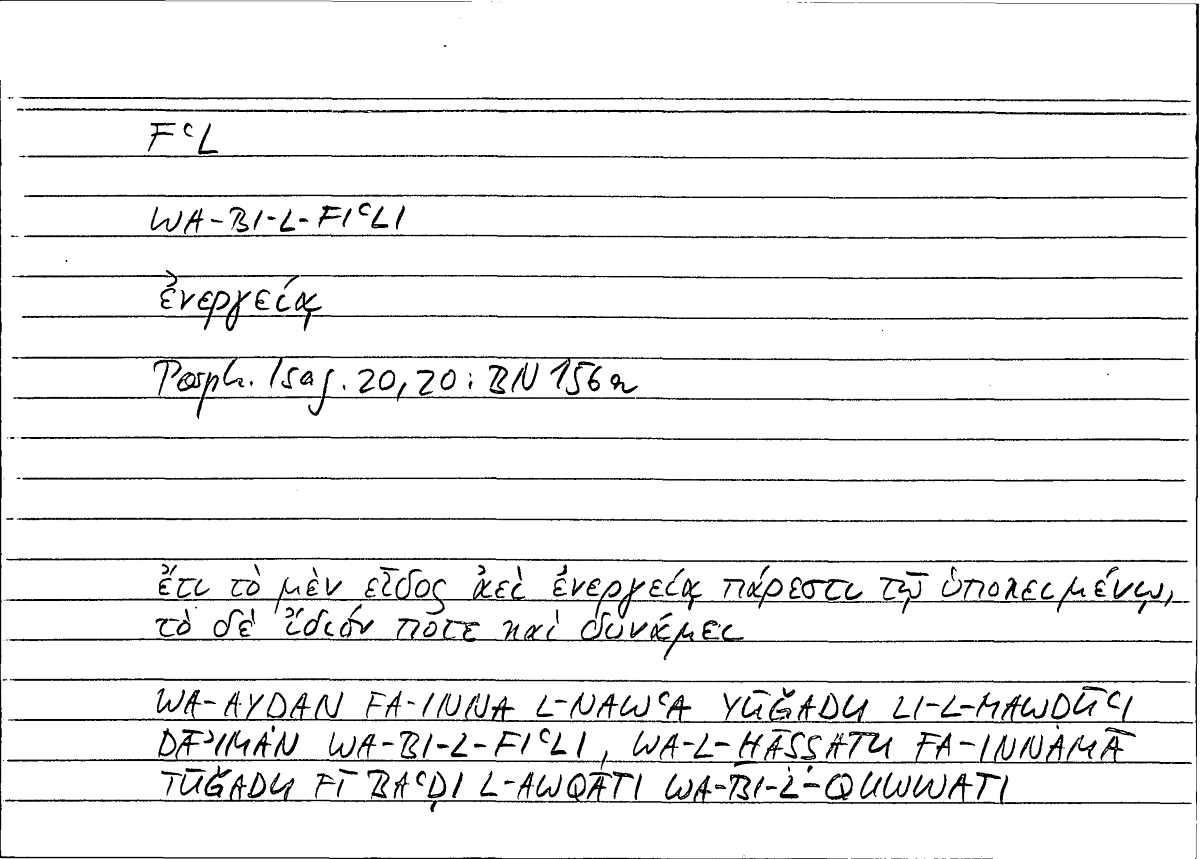 FʿL
WA-BI-L-FIʿLI
ἐνεργείᾳ
Porph. Isag. 20,20: BN 156a
ἔτι τὸ μὲν εἶδος ἀεὶ ἐνεργείᾳ πάρεστι τῷ ὑποκειμένῳ,
τὸ δὲ ἴδιόν ποτε καὶ δυνάμει
WA-AYDAN FA-INNA L-NAWʿA YŪǦADU LI-L-MAWDŪʿI
DĀʾIMAN WA-BI-L-FIʿLI, WA-L-HĀSSATU FA-INNAMĀ
TŪǦADU FĪ BAʿḌI L-AWQĀTI WA-BI-L-QUWWATI